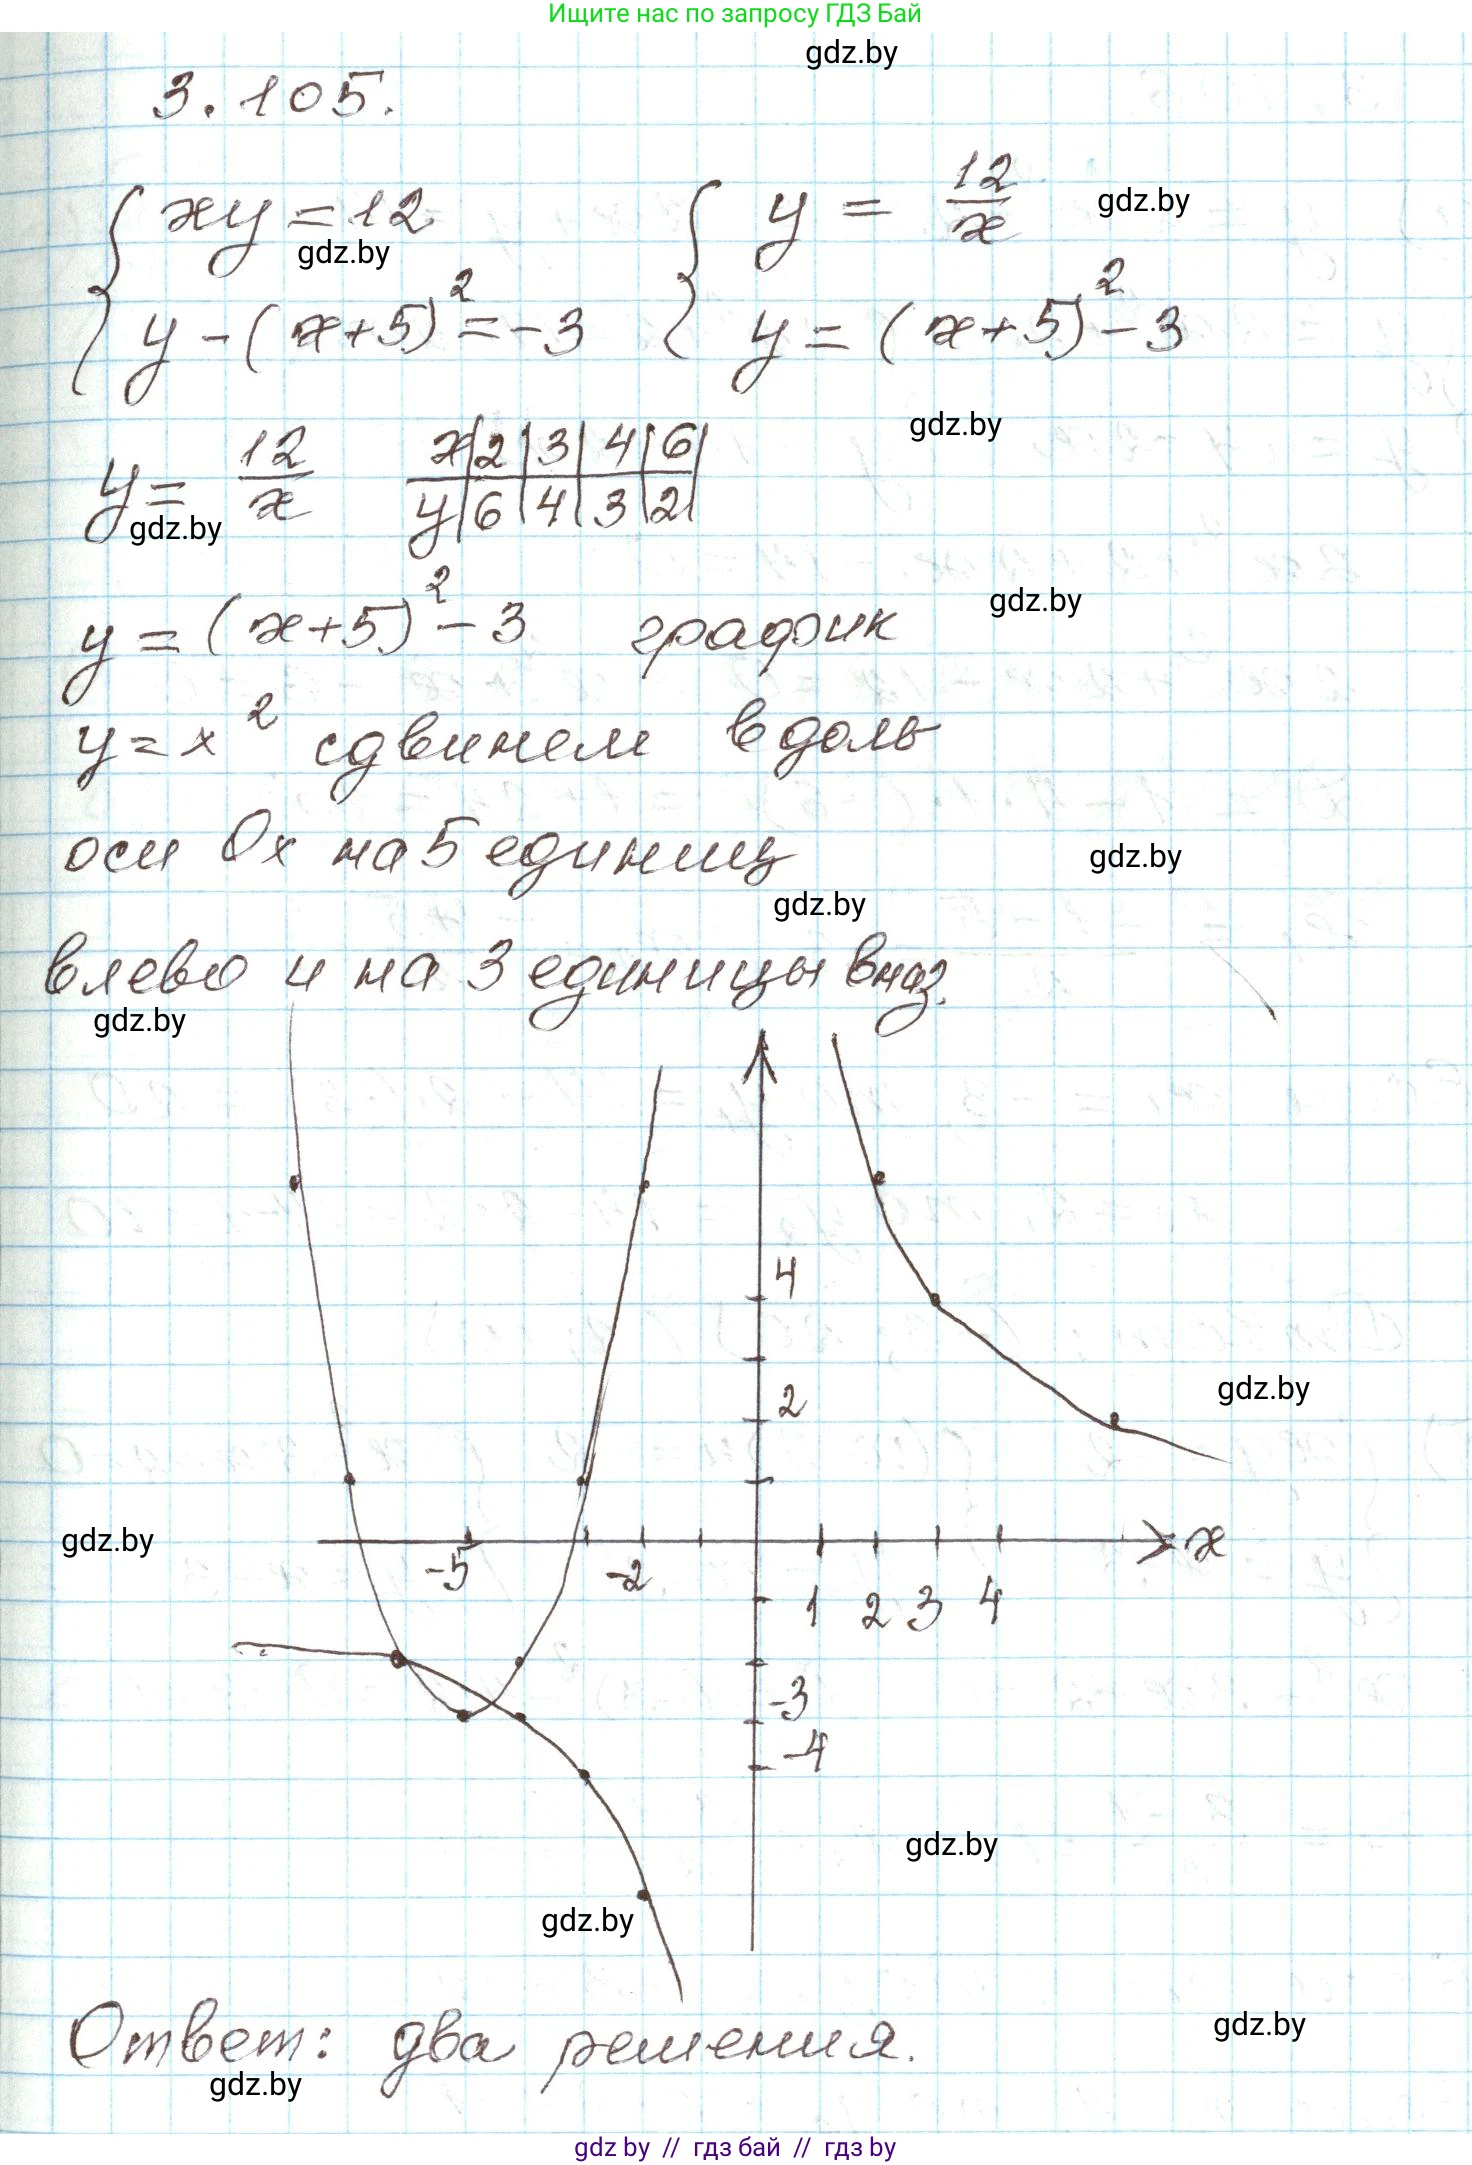 Ищите нас по запросу ГДЗ Бай
gdz.by
3.105.
{ xy = 12   { y = 12/x
gdz.by
gdz.by
y - (x+5)² = -3   y = (x+5)² - 3
gdz.by
y = 12/x   x | 2 | 3 | 4 | 6 |
y | 6 | 4 | 3 | 2 |
gdz.by
gdz.by
y = (x+5)² - 3   график
y = x² сдвинем вдоль
оси Ox на 5 единиц
gdz.by
gdz.by
влево и на 3 единицы вниз.
gdz.by
4
gdz.by
2
gdz.by
x
-5
-2
1 2 3 4
-3
-4
gdz.by
gdz.by
Ответ: два решения.
gdz.by
gdz.by
gdz by // гдз бай // gdz by